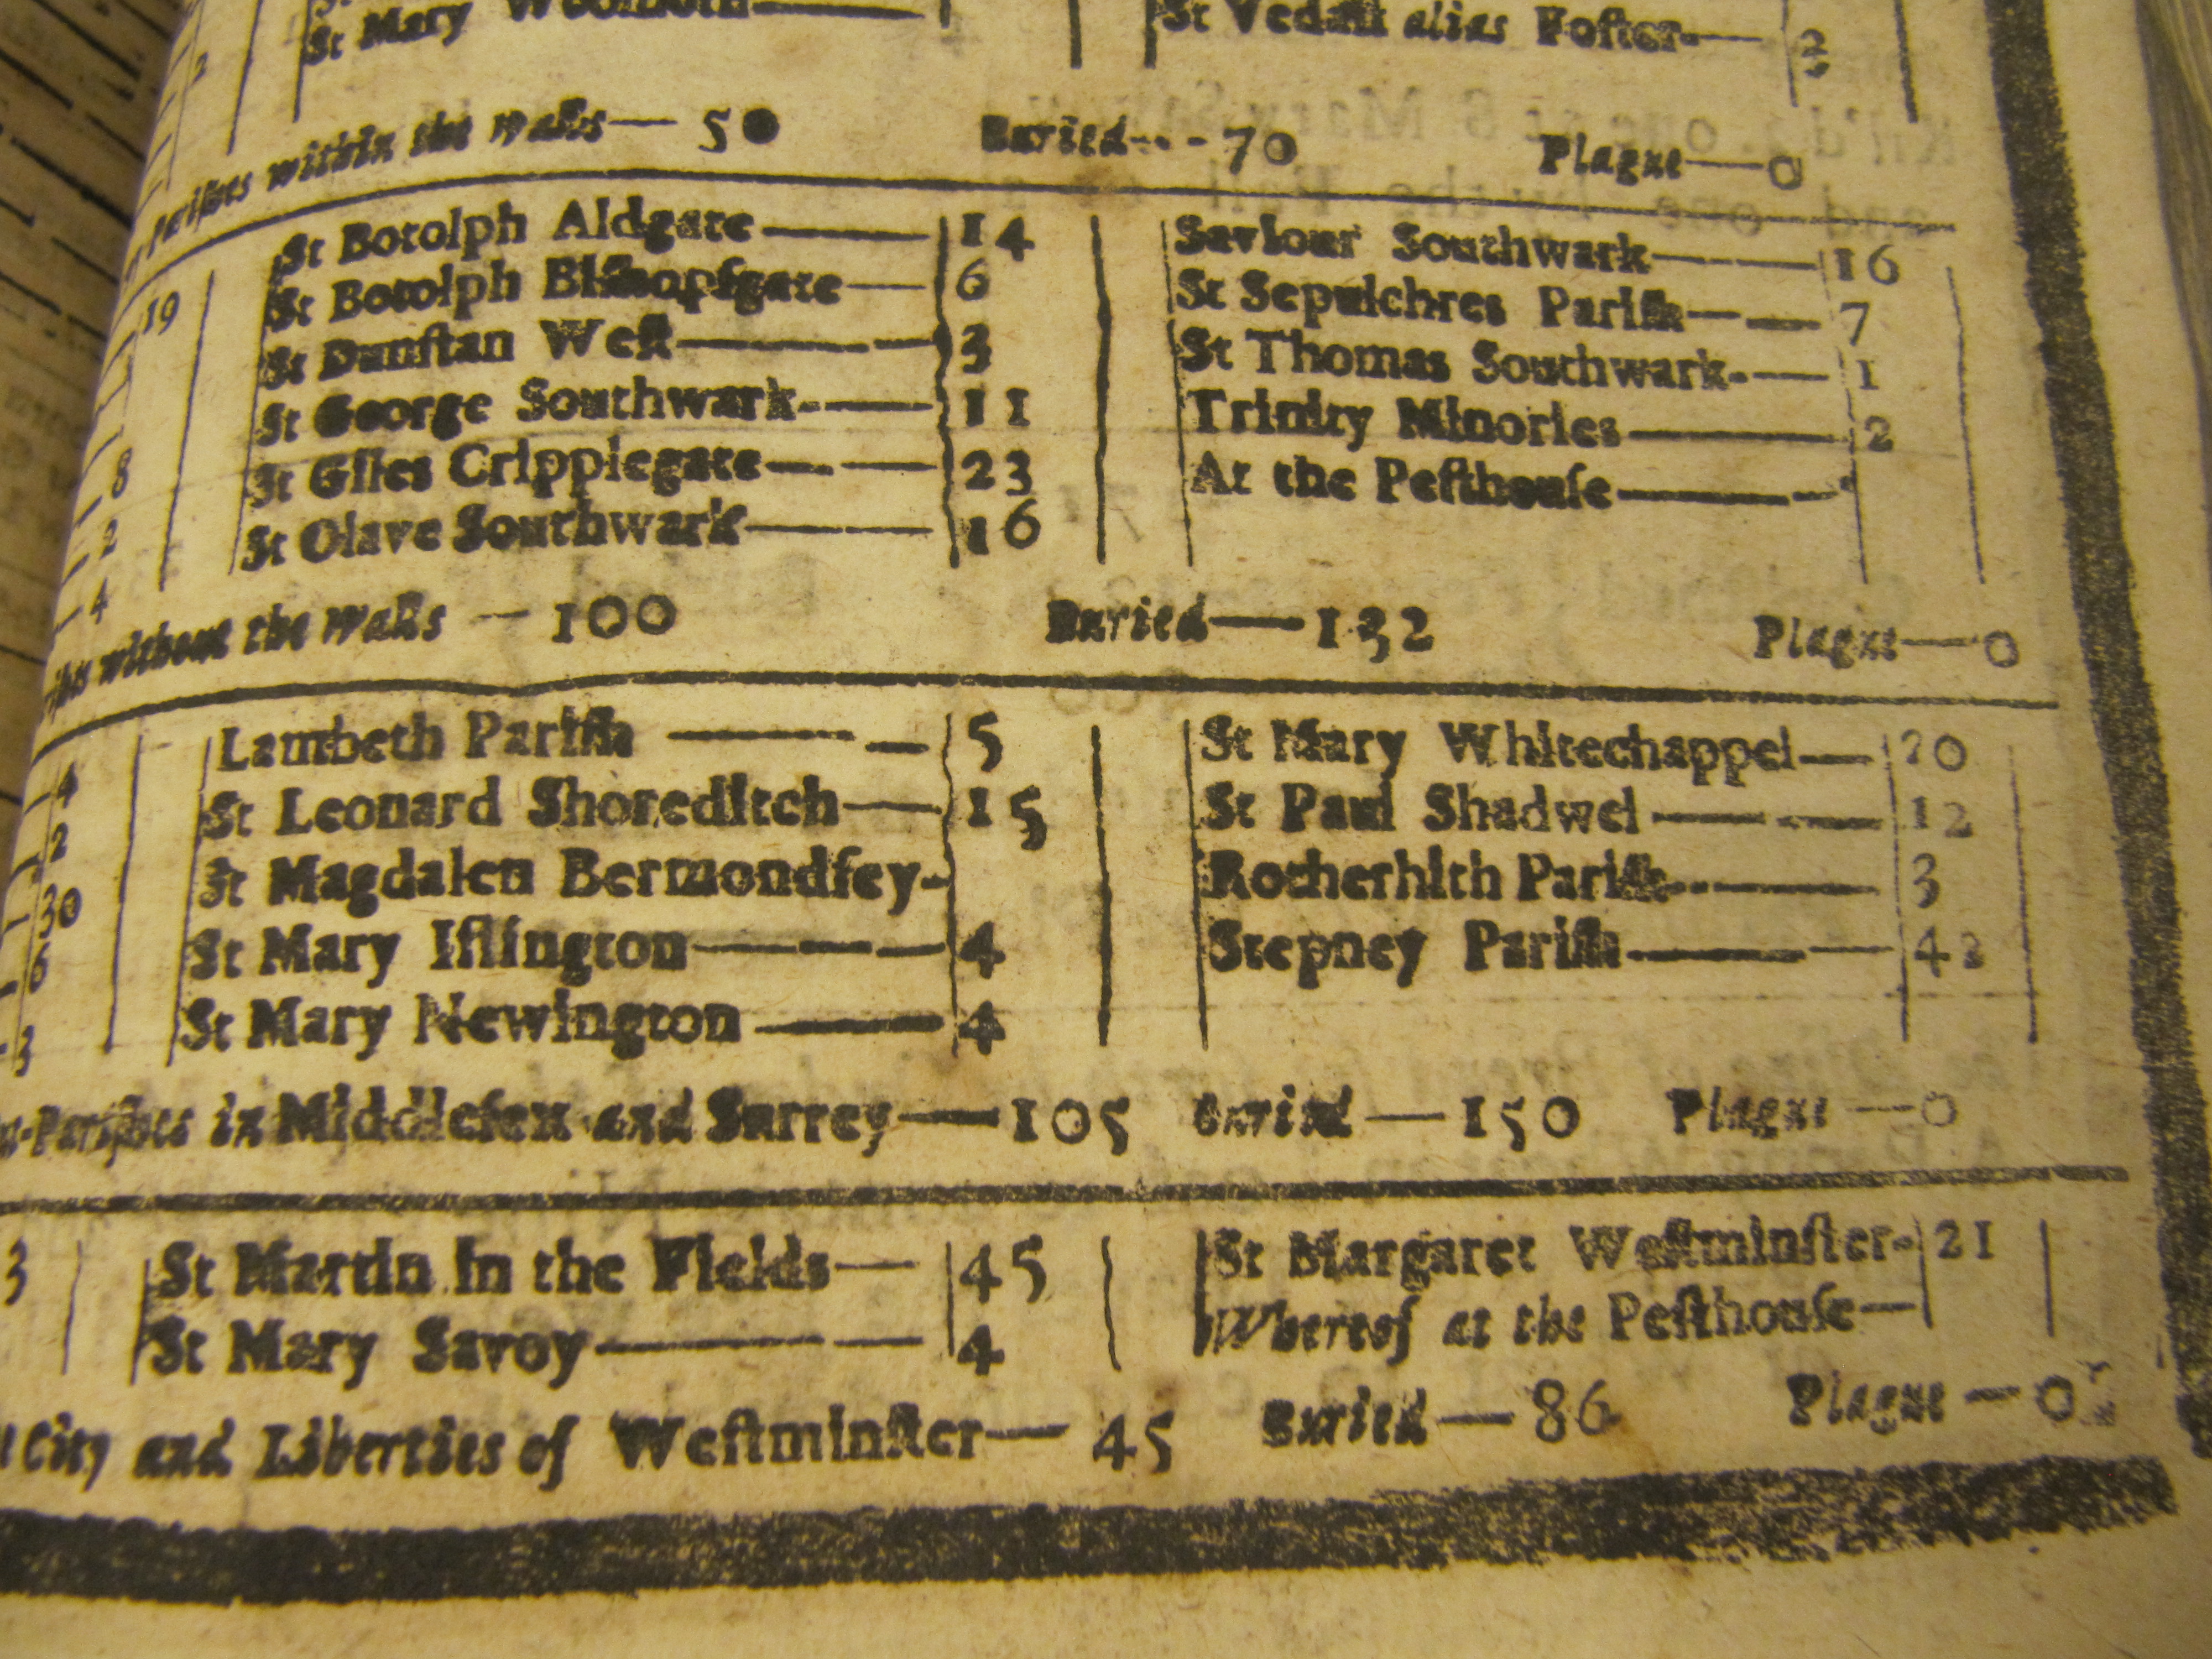 St Mary Woolnoth— St Vedast alias Foster-— 2
2
Parishes within the walls— 50 Buried--- 70 Plague—0
St Botolph Aldgate— 14 Saviour Southwark— 16
19 St Botolph Bishopſgate— 6 St Sepulchres Pariſh— 7
St Dunſtan Weſt— 3 St Thomas Southwark-— 1
St George Southwark-— 11 Trinity Minories— 2
8 St Giles Cripplegate— 23 At the Peſthouſe—
2 St Olave Southwark— 16
4
without the walls — 100 Buried—132 Plague—0
Lambeth Pariſh — 5 St Mary Whitechappel— 20
4 St Leonard Shoreditch— 15 St Paul Shadwel— 12
2 St Magdalen Bermondſey- Rotherhith Pariſh-— 3
30 St Mary Iſlington— 4 Stepney Pariſh— 42
6 St Mary Newington— 4
3
-Pariſhes in Middleſex and Surrey—105 Buried—150 Plague—0
3 St Martin in the Fields— 45 St Margaret Weſtminſter- 21
St Mary Savoy— 4 Whereof at the Peſthouſe—
City and Liberties of Weſtminſter— 45 Buried—86 Plague—0